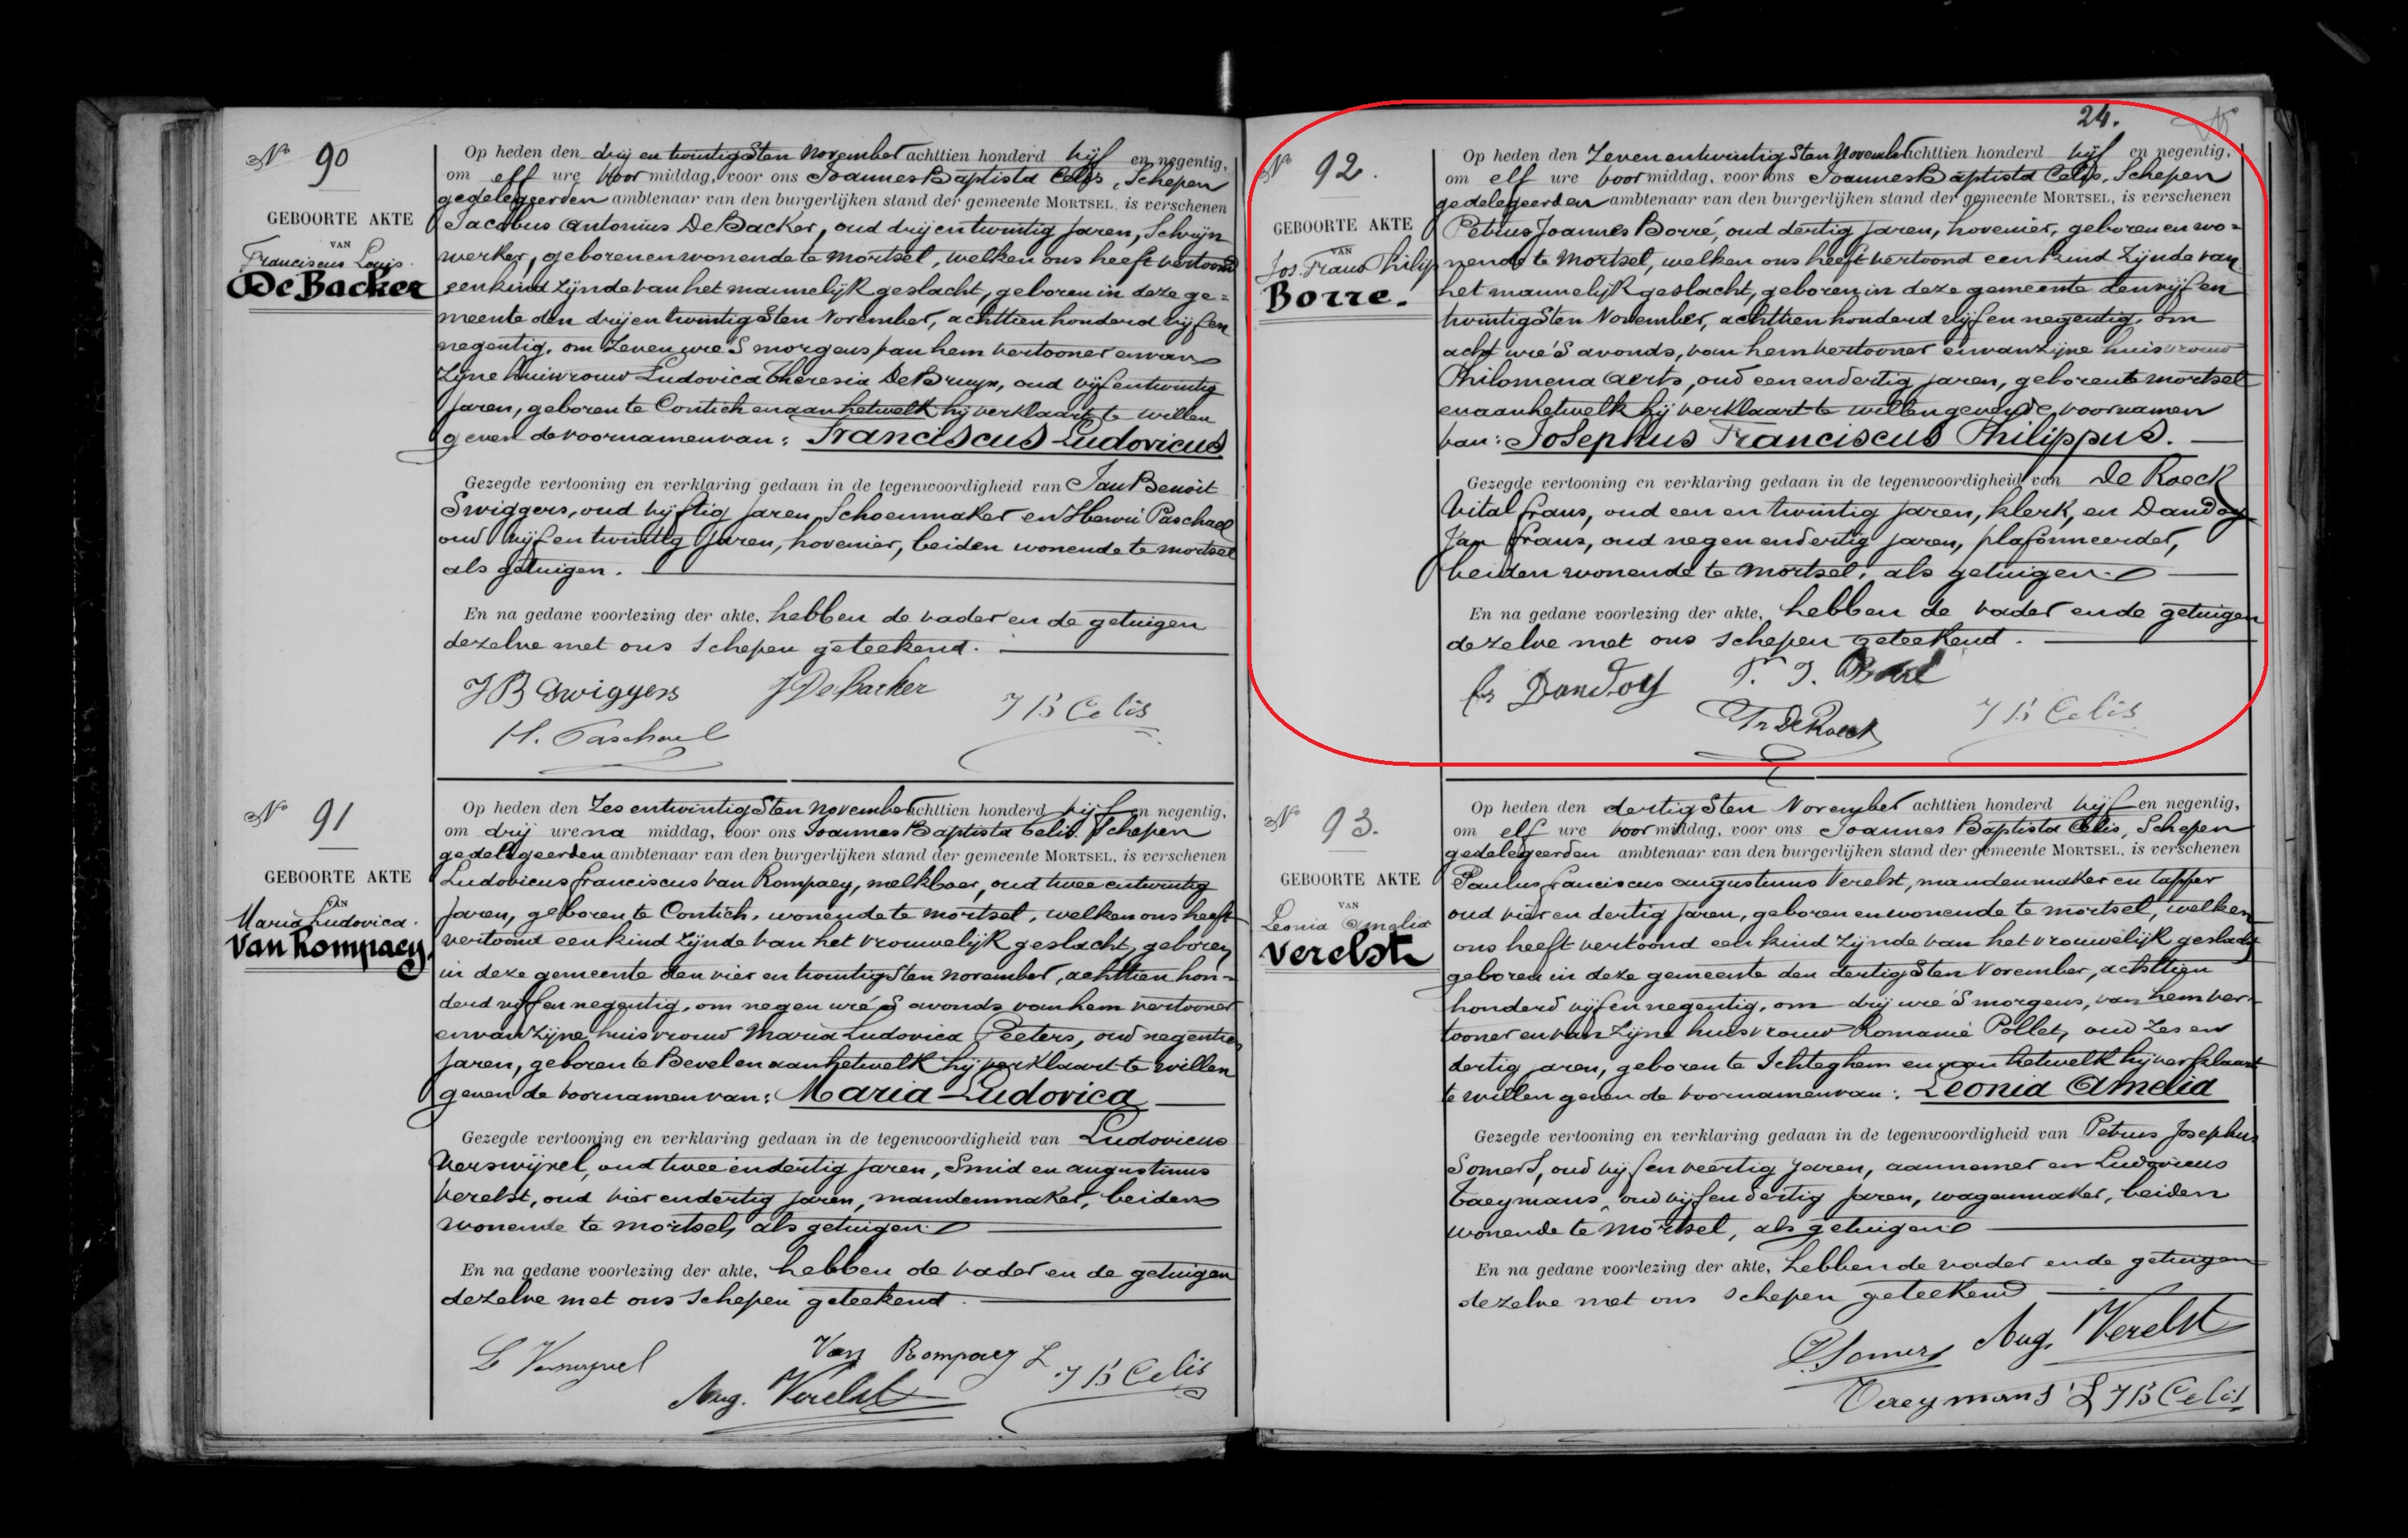 Nº 90
GEBOORTE AKTE
VAN
Franciscus Louis.
De Backer
Op heden den drij en twintigsten November achttien honderd vijf en negentig,
om elf ure voor middag, voor ons Joannes Baptista Celis, Schepen
gedelegeerden ambtenaar van den burgerlijken stand der gemeente MORTSEL, is verschenen
Jacobus Antonius De Backer, oud drij en twintig jaren, Schrijn
werker, geboren en wonende te Mortsel, welken ons heeft vertoond
een kind zijnde van het mannelijk geslacht, geboren in deze ge=
meente den drij en twintigsten November, achttien honderd vijf en
negentig, om zeven ure 's morgens van hem vertooner en van
zijne huisvrouw Ludovica Theresia De Bruyn, oud vijf en twintig
jaren, geboren te Contich en aan hetwelk hij verklaart te willen
geven de voornamen van: Franciscus Ludovicus
Gezegde vertooning en verklaring gedaan in de tegenwoordigheid van Jan Benoit
Swiggers, oud vijftig jaren, Schoenmaker en Henri Paschael
oud vijf en twintig jaren, hovenier, beiden wonende te Mortsel
als getuigen.
En na gedane voorlezing der akte, hebben de vader en de getuigen
dezelve met ons Schepen geteekend.
J B Swiggers J De Backer J B Celis
H. Paschael
Nº 91
GEBOORTE AKTE
VAN
Maria Ludovica.
Van Rompaey.
Op heden den Zes en twintigsten November achttien honderd vijf en negentig,
om drij ure na middag, voor ons Joannes Baptista Celis Schepen
gedelegeerden ambtenaar van den burgerlijken stand der gemeente MORTSEL, is verschenen
Ludovicus Franciscus Van Rompaey, melkboer, oud twee en twintig
jaren, geboren te Contich, wonende te Mortsel, welken ons heeft
vertoond een kind zijnde van het vrouwelijk geslacht, geboren
in deze gemeente den vier en twintigsten November, achttien hon=
derd vijf en negentig, om negen ure 's avonds van hem vertooner
en van zijne huisvrouw Maria Ludovica Peeters, oud negentien
jaren, geboren te Bevel en aan hetwelk hij verklaart te willen
geven de voornamen van: Maria Ludovica
Gezegde vertooning en verklaring gedaan in de tegenwoordigheid van Ludovicus
Verswijvel, oud twee en dertig jaren, Smid en Augustinus
Verelst, oud vier en dertig jaren, mandenmaker, beiden
wonende te Mortsel, als getuigen.
En na gedane voorlezing der akte, hebben de vader en de getuigen
dezelve met ons Schepen geteekend.
L Verswyvel Van Rompaey L J B Celis
Aug. Verelst
24.
Nº 92.
GEBOORTE AKTE
VAN
Jos. Frans Philip
Borre.
Op heden den Zeven en twintigsten November achttien honderd vijf en negentig,
om elf ure voor middag, voor ons Joannes Baptista Celis, Schepen
gedelegeerden ambtenaar van den burgerlijken stand der gemeente MORTSEL, is verschenen
Petrus Joannes Borré, oud dertig jaren, hovenier, geboren en wo=
nende te Mortsel, welken ons heeft vertoond een kind zijnde van
het mannelijk geslacht, geboren in deze gemeente den vijf en
twintigsten November, achttien honderd vijf en negentig, om
acht ure 's avonds, van hem vertooner en van zijne huisvrouw
Philomena Aerts, oud een en dertig jaren, geboren te Mortsel
en aan hetwelk hij verklaart te willen geven de voornamen
van: Josephus Franciscus Philippus.
Gezegde vertooning en verklaring gedaan in de tegenwoordigheid van De Roeck
Vital Frans, oud een en twintig jaren, klerk, en Dandoy
Jan Frans, oud negen en dertig jaren, plafonneerder,
beiden wonende te Mortsel, als getuigen.
En na gedane voorlezing der akte, hebben de vader en de getuigen
dezelve met ons Schepen geteekend.
Fs Dandoy P. J. Borré
Fr De Roeck J B Celis
Nº 93.
GEBOORTE AKTE
VAN
Leonia Amelia
Verelst
Op heden den dertigsten November achttien honderd vijf en negentig,
om elf ure voor middag, voor ons Joannes Baptista Celis, Schepen
gedelegeerden ambtenaar van den burgerlijken stand der gemeente MORTSEL, is verschenen
Paulus Franciscus Augustinus Verelst, mandenmaker en tapper
oud vier en dertig jaren, geboren en wonende te Mortsel, welken
ons heeft vertoond een kind zijnde van het vrouwelijk geslacht
geboren in deze gemeente den dertigsten November, achttien
honderd vijf en negentig, om drij ure 's morgens, van hem ver=
tooner en van zijne huisvrouw Romanie Pollet, oud zes en
dertig jaren, geboren te Ichteghem en aan hetwelk hij verklaart
te willen geven de voornamen van: Leonia Amelia
Gezegde vertooning en verklaring gedaan in de tegenwoordigheid van Petrus Josephus
Somers, oud vijf en veertig jaren, aannemer en Ludovicus
Taeymans, oud vijf en dertig jaren, wagenmaker, beiden
wonende te Mortsel, als getuigen
En na gedane voorlezing der akte, hebben de vader en de getuigen
dezelve met ons Schepen geteekend
P. Somers Aug. Verelst
Taeymans L J B Celis